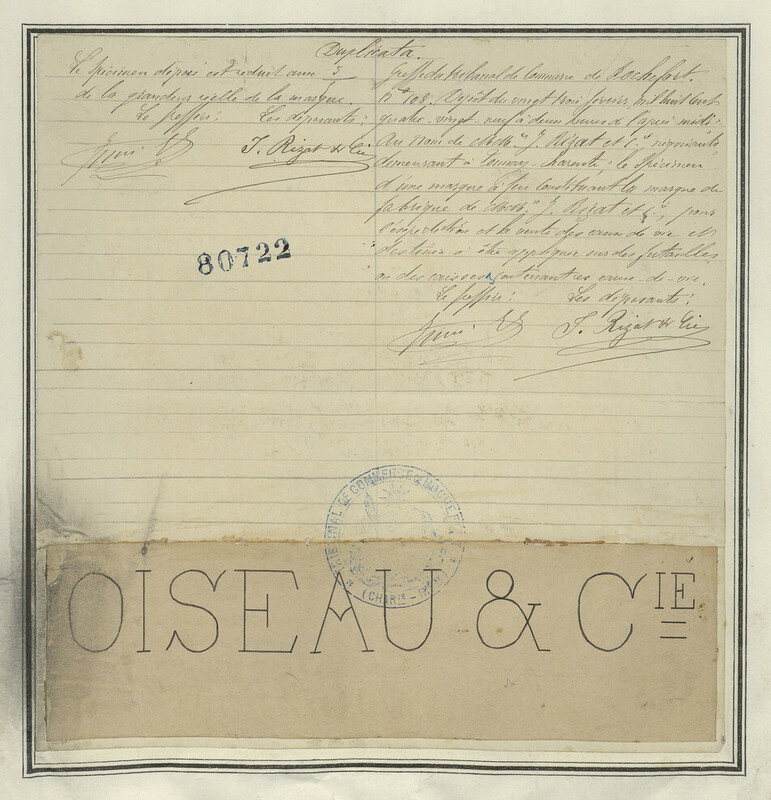 Duplicata.
Le spécimen déposé est réduit aux
de la grandeur réelle de la marque.
Le greffier: Les déposants:
J. Rizat & Cie
80722
Greffe du tribunal de Commerce de Rochefort.
N° 108. Dépôt du vingt trois février mil huit cent
quatre-vingt neuf à deux heures de l'après midi:
Au nom de MM. "J. Rizat et Cie", négociants
demeurant à Tonnay-Charente; le spécimen
d'une marque à feu constituant la marque de
fabrique de MM. "J. Rizat et Cie", pour
l'expédition et la vente des eaux de vie et
destinée à être appliquée sur des futailles
ou des caisses contenant ces eaux-de-vie.
Le greffier: Les déposants:
J. Rizat & Cie
TRIBUNAL DE COMMERCE DE ROCHEFORT
(CHARTE - INFRE)
OISEAU & CIÉ